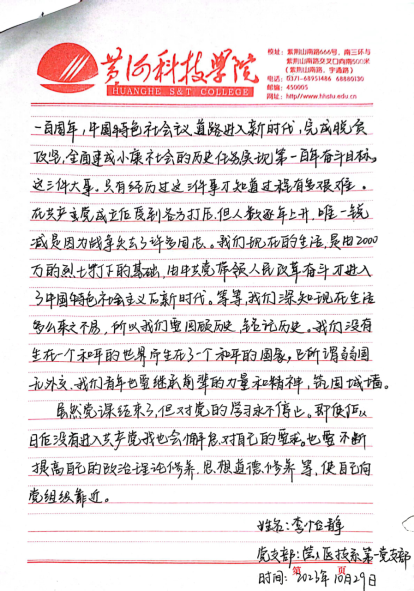 黄河科技学院
HUANGHE S.&T. COLLEGE
校址：紫荆山南路666号，南三环与
紫荆山南路交叉口向南500米
（紫荆山南路，宇通路）
电话：0371-68951486 68880130
邮编：450005
网址：http://www.hhstu.edu.cn
一百周年，中国特色社会主义道路进入新时代，完成脱贫
攻坚，全面建成小康社会的历史任务实现第一百年奋斗目标。
这三件大事，只有经历过这三件事才知道过程有多艰难。
在共产党成立后受到各方打压，但人数逐年上升，唯一锐
减是因为战争失去了许多同志。我们现在的生活，是由2000
万的烈士打下的基础，由中共党带领人民改革奋斗才进入
了中国特色社会主义新时代。等等，我们深知现在生活
多么来之不易，所以我们要回顾历史，铭记历史。我们没有
生在一个和平的世界，而生在了一个和平的国家，正所谓弱国
无外交，我们青年也要继承前辈的力量和精神，筑固城墙。
虽然党课结束了，但对党的学习永不停止。即使
日后没有进入共产党，我也会对自己的要求。也要不断
提高自己的政治理论修养，思想道德修养等，使自己向
党组织靠近。
姓名：李怡静
党支部：医技系第一党支部
时间：2023年10月29日
第 页